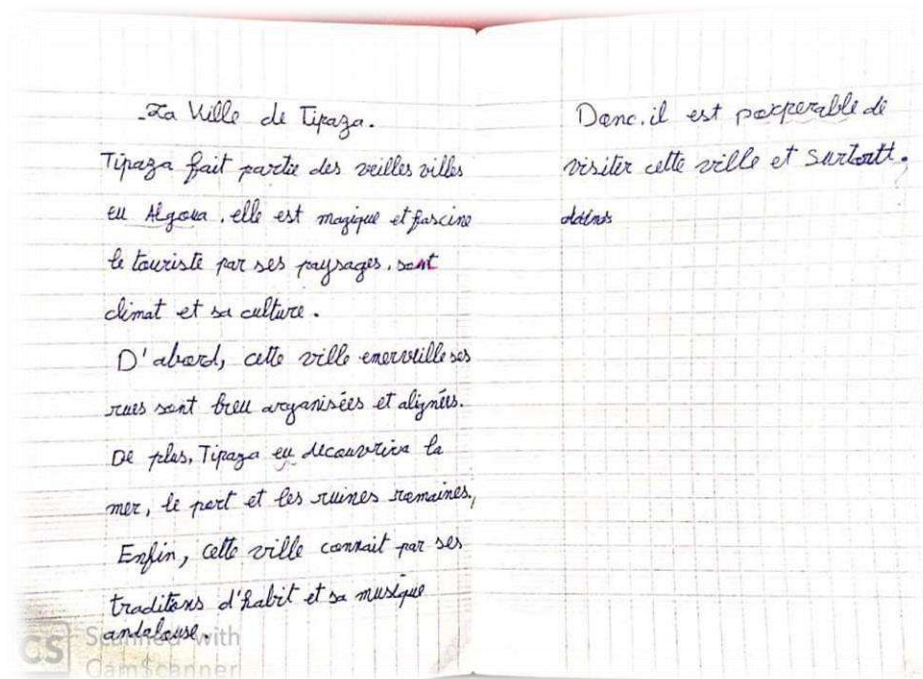 La Ville de Tipaza.
Tipaza fait partie des veilles villes
eu Algoua, elle est magique et fascine
le touriste par ses paysages, sont
climat et sa culture.
D'abord, cette ville emerveille ses
rues sont breu organisées et alignées.
De plus, Tipaza eu decouvrira la
mer, le port et les ruines romaines,
Enfin, cette ville connait par ses
traditons d'habit et sa musique
andalouse.
Donc, il est
de
visiter cette ville et Surtoutt.
CS Scanned with
CamScanner